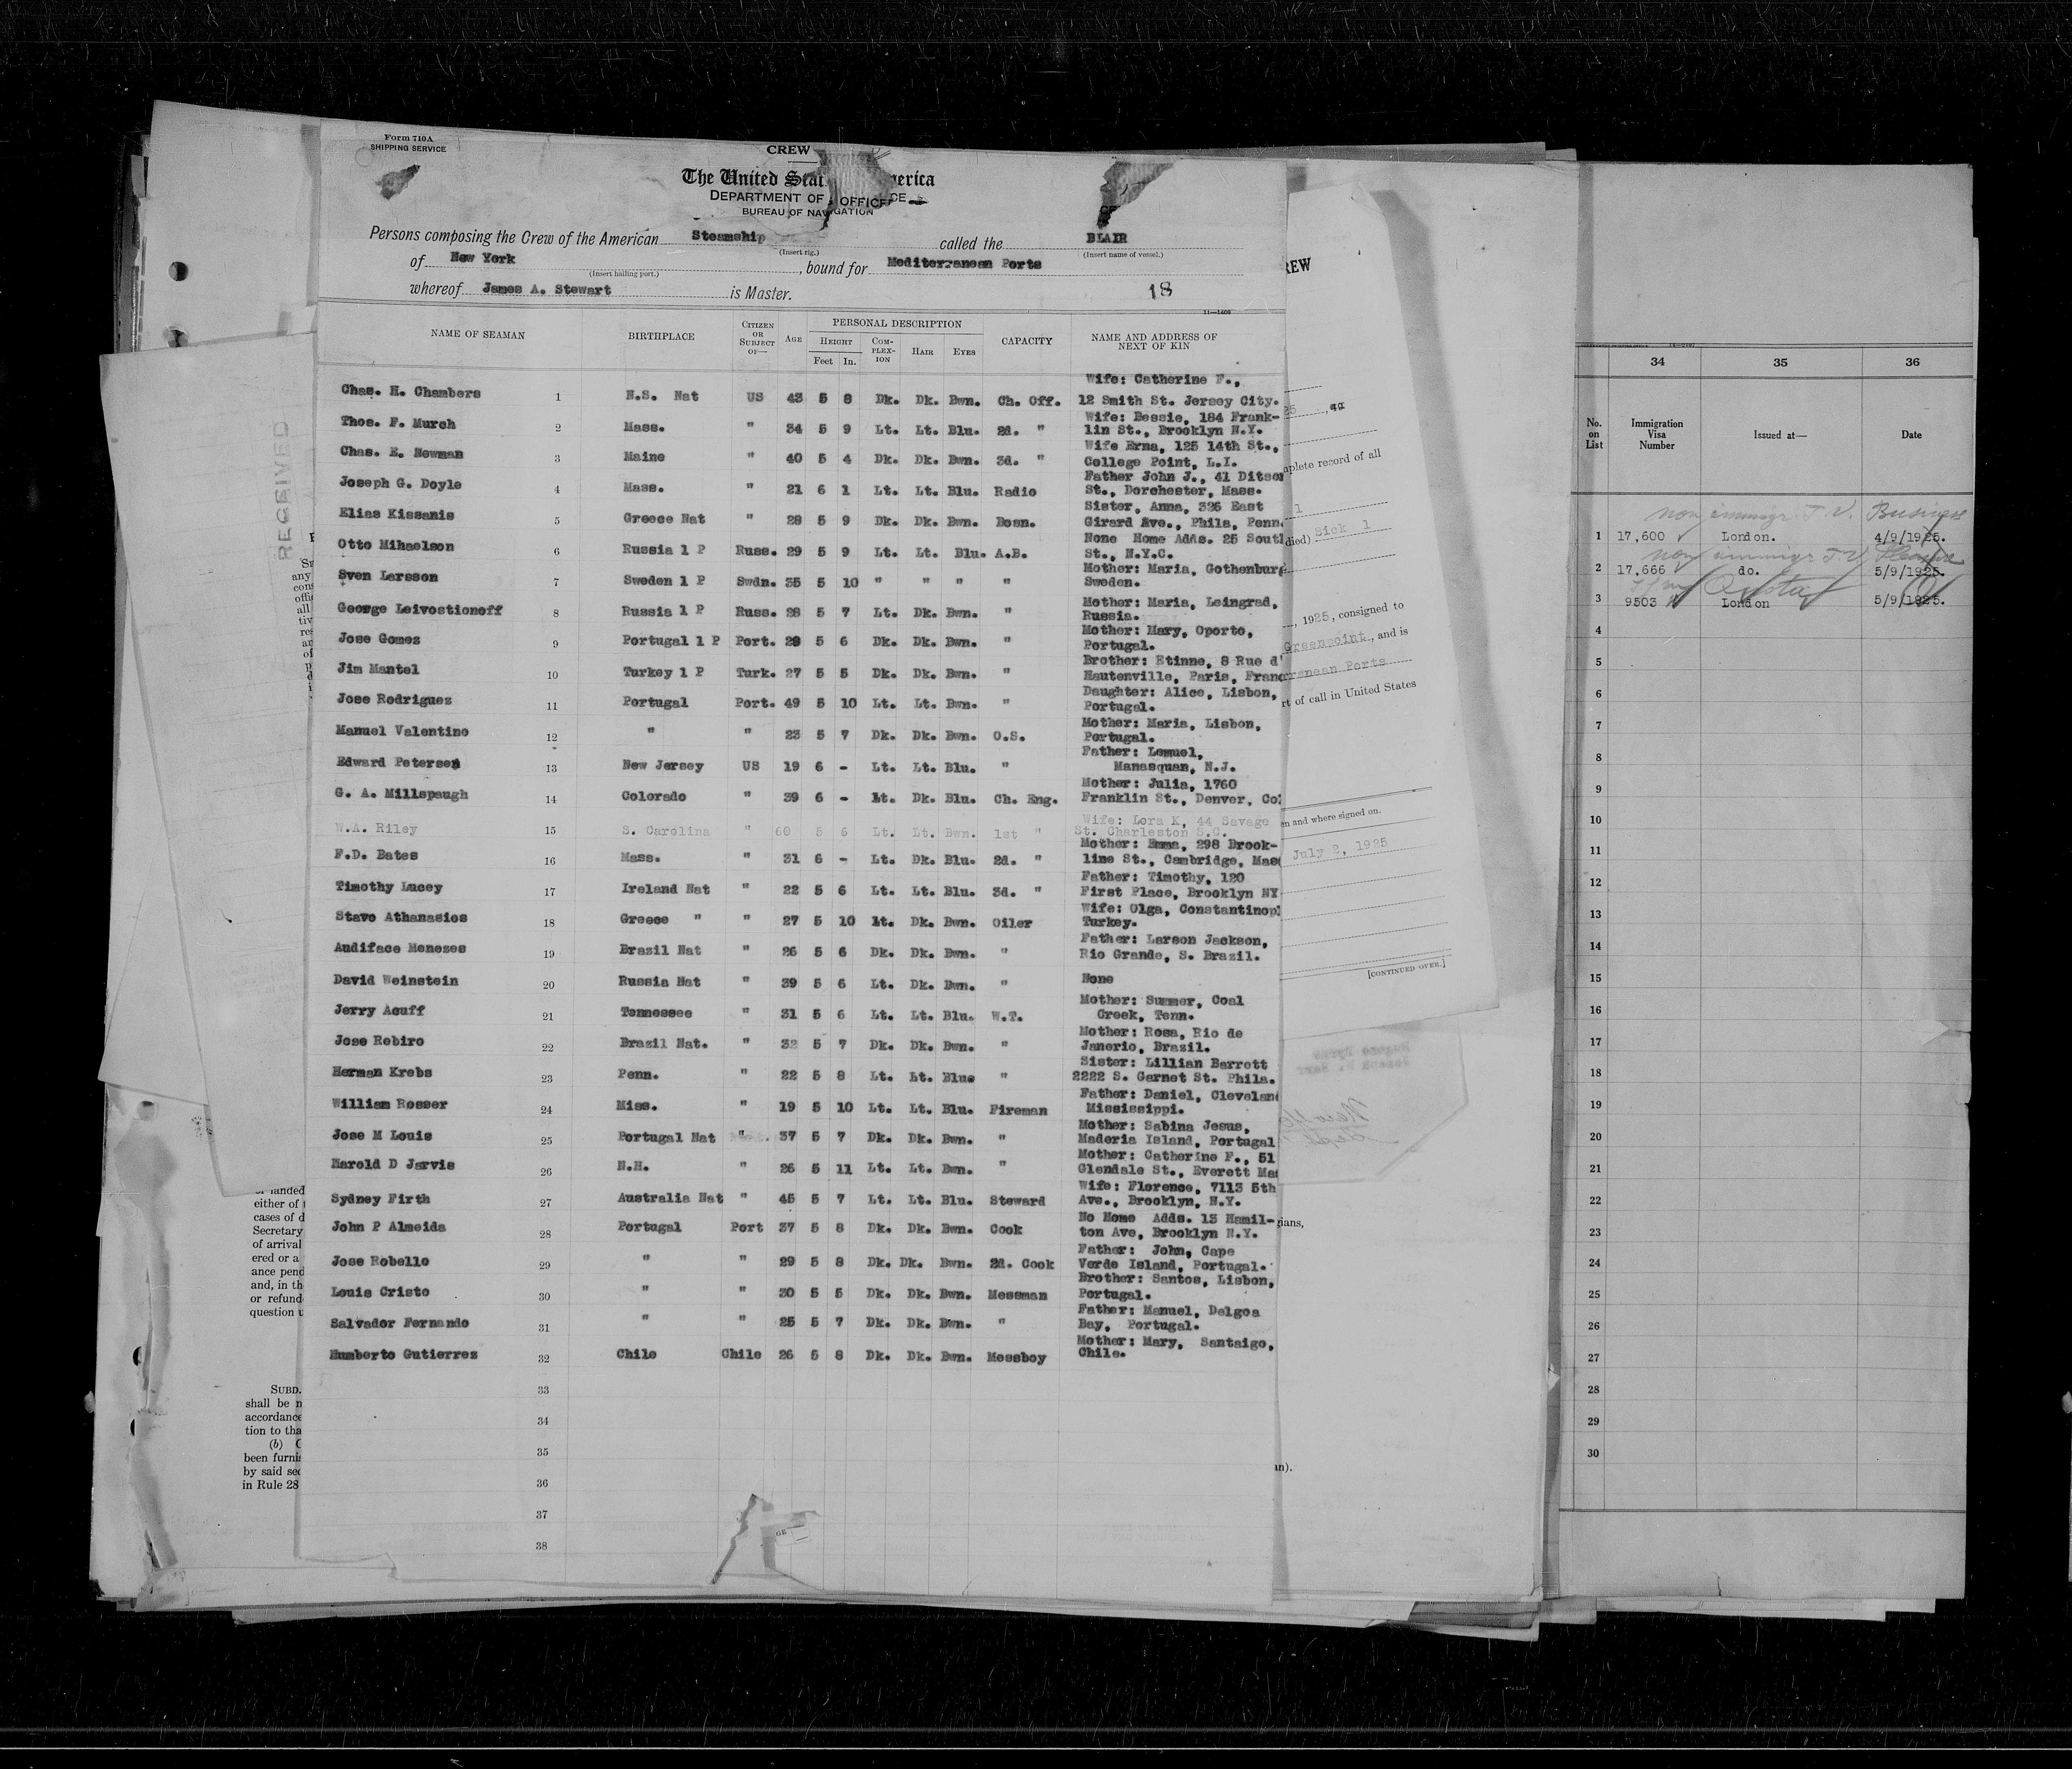 Form 710A
SHIPPING SERVICE
CREW
The United Stat erica
DEPARTMENT OF
OFFICE
BUREAU OF NAVIGATION
Persons composing the Crew of the American Steamship called the BLAIR
(Insert rig.) (Insert name of vessel.)
of New York, bound for Mediterranean Ports
(Insert hailing port.)
whereof James A. Stewart is Master.
18
11—1400
NAME OF SEAMAN BIRTHPLACE CITIZEN OR SUBJECT OF— AGE PERSONAL DESCRIPTION CAPACITY NAME AND ADDRESS OF NEXT OF KIN
HEIGHT COM-PLEX-ION HAIR EYES
Feet In.
Wife: Catherine F.,
Chas. H. Chambers 1 N.S. Nat US 43 5 8 Dk. Dk. Bwn. Ch. Off. 12 Smith St. Jersey City.
Wife: Bessie, 184 Frank-
Thos. F. Murch 2 Mass. " 34 5 9 Lt. Lt. Blu. 2d. " lin St., Brooklyn N.Y.
Wife Erna, 125 14th St.,
Chas. E. Newman 3 Maine " 40 5 4 Dk. Dk. Bwn. 3d. " College Point, L.I.
Father John J., 41 Ditson
Joseph G. Doyle 4 Mass. " 21 6 1 Lt. Lt. Blu. Radio St., Dorchester, Mass.
Sister, Anna, 325 East
Elias Kissanis 5 Greece Nat " 28 5 9 Dk. Dk. Bwn. Bosn. Girard Ave., Phila, Penn.
None Home Adds. 25 South
Otto Mihaelson 6 Russia 1 P Russ. 29 5 9 Lt. Lt. Blu. A.B. St., N.Y.C.
Mother: Maria, Gothenburg
Sven Larsson 7 Sweden 1 P Swdn. 35 5 10 " " " " Sweden.
Mother: Maria, Leingrad,
George Leivostioneff 8 Russia 1 P Russ. 28 5 7 Lt. Dk. Bwn. " Russia.
Mother: Mary, Oporto,
Jose Gomez 9 Portugal 1 P Port. 29 5 6 Dk. Dk. Bwn. " Portugal.
Brother: Etinne, 8 Rue d'
Jim Mantel 10 Turkey 1 P Turk. 27 5 5 Dk. Dk. Bwn. " Hautenville, Paris, Franc
Daughter: Alice, Lisbon,
Jose Rodriguez 11 Portugal Port. 49 5 10 Lt. Lt. Bwn. " Portugal.
Mother: Maria, Lisbon,
Manuel Valentino 12 " " 23 5 7 Dk. Dk. Bwn. O.S. Portugal.
Father: Lemuel,
Edward Petersen 13 New Jersey US 19 6 - Lt. Lt. Blu. " Manasquan, N.J.
Mother: Julia, 1760
G. A. Millspaugh 14 Colorado " 39 6 - Lt. Dk. Blu. Ch. Eng. Franklin St., Denver, Col
Wife: Lora K, 44 Savage
W.A. Riley 15 S. Carolina " 60 5 6 Lt. Lt. Bwn. 1st " St. Charleston S.C.
Mother: Emma, 298 Brook-
F.D. Bates 16 Mass. " 31 6 - Lt. Dk. Blu. 2d. " line St., Cambridge, Mas
Father: Timothy, 120
Timothy Lucey 17 Ireland Nat " 22 5 6 Lt. Lt. Blu. 3d. " First Place, Brooklyn NY
Wife: Olga, Constantinopl
Stavo Athanasios 18 Greece " " 27 5 10 Lt. Dk. Bwn. Oiler Turkey.
Father: Larson Jackson,
Audiface Menezes 19 Brazil Nat " 26 5 6 Dk. Dk. Bwn. " Rio Grande, S. Brazil.
David Weinstein 20 Russia Nat " 39 5 6 Lt. Dk. Bwn. " None
Mother: Summer, Coal
Jerry Acuff 21 Tennessee " 31 5 6 Lt. Lt. Blu. W.T. Creek, Tenn.
Mother: Rosa, Rio de
Jose Rebiro 22 Brazil Nat. " 32 5 7 Dk. Dk. Bwn. " Janerio, Brazil.
Sister: Lillian Barrett
Herman Krebs 23 Penn. " 22 5 8 Lt. Lt. Blue " 2222 S. Garnet St. Phila.
Father: Daniel, Cleveland
William Rosser 24 Miss. " 19 5 10 Lt. Lt. Blu. Fireman Mississippi.
Mother: Sabina Jesus,
Jose M Louis 25 Portugal Nat " 37 5 7 Dk. Dk. Bwn. " Maderia Island, Portugal
Mother: Catherine F., 51
Harold D Jarvis 26 N.H. " 26 5 11 Lt. Lt. Bwn. " Glendale St., Everett Mas
Wife: Florence, 7113 5th
Sydney Firth 27 Australia Nat " 45 5 7 Lt. Lt. Blu. Steward Ave., Brooklyn, N.Y.
No Home Adds. 13 Hamil-
John P Almeida 28 Portugal Port 37 5 8 Dk. Dk. Bwn. Cook ton Ave, Brooklyn N.Y.
Father: John, Cape
Jose Robello 29 " " 29 5 8 Dk. Dk. Bwn. 2d. Cook Verde Island, Portugal.
Brother: Santos, Lisbon,
Louis Cristo 30 " " 30 5 5 Dk. Dk. Bwn. Messman Portugal.
Father: Manuel, Delgoa
Salvador Fernando 31 " " 25 5 7 Dk. Dk. Bwn. " Bay, Portugal.
Mother: Mary, Santaigo,
Humberto Gutierrez 32 Chile Chile 26 5 8 Dk. Dk. Bwn. Messboy Chile.
33
34
35
36
37
38
RECEIVED
or landed
either of
cases of d
Secretary
of arrival
ered or a
ance pend
and, in th
or refund
question u
SUBD.
shall be n
accordance
tion to tha
(b) C
been furni
by said sec
in Rule 28
REW
25
plete record of all
1
died) Sick 1
, 1925, consigned to
Greenpoint, and is
rranean Ports
rt of call in United States
en and where signed on.
July 2, 1925
[CONTINUED OVER.]
ians,
an).
34 35 36
No. on List Immigration Visa Number Issued at— Date
non immigr T.V. Business
1 17,600 London. 4/9/1925.
non immigr T.V.
2 17,666 do. 5/9/1925.
3 9503 London 5/9/1925.
4
5
6
7
8
9
10
11
12
13
14
15
16
17
18
19
20
21
22
23
24
25
26
27
28
29
30